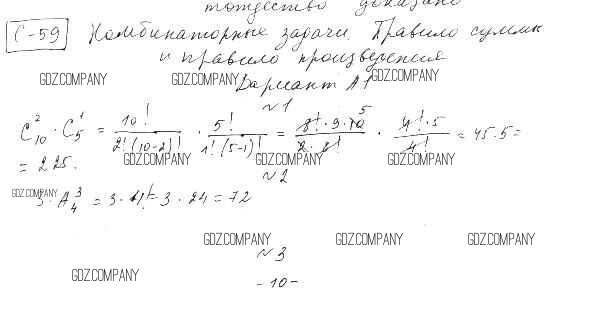 тождество доказано
С-59 Комбинаторные задачи. Правило суммы
и правило произведения
GDZ.COMPANY GDZ.COMPANY GDZ.COMPANY
Вариант А1
№1
C₁₀² · C₅¹ = 10! / 2!(10-2)! · 5! / 1!(5-1)! = 8!·9·10 5 / 2·8! · 4!·5 / 4! = 45·5 =
= 225.
GDZ.COMPANY GDZ.COMPANY GDZ.COMPANY
№2
GDZ.COMPANY
3·A₄³ = 3·4! = 3·24 = 72
GDZ.COMPANY GDZ.COMPANY GDZ.COMPANY
№3
GDZ.COMPANY
-10-